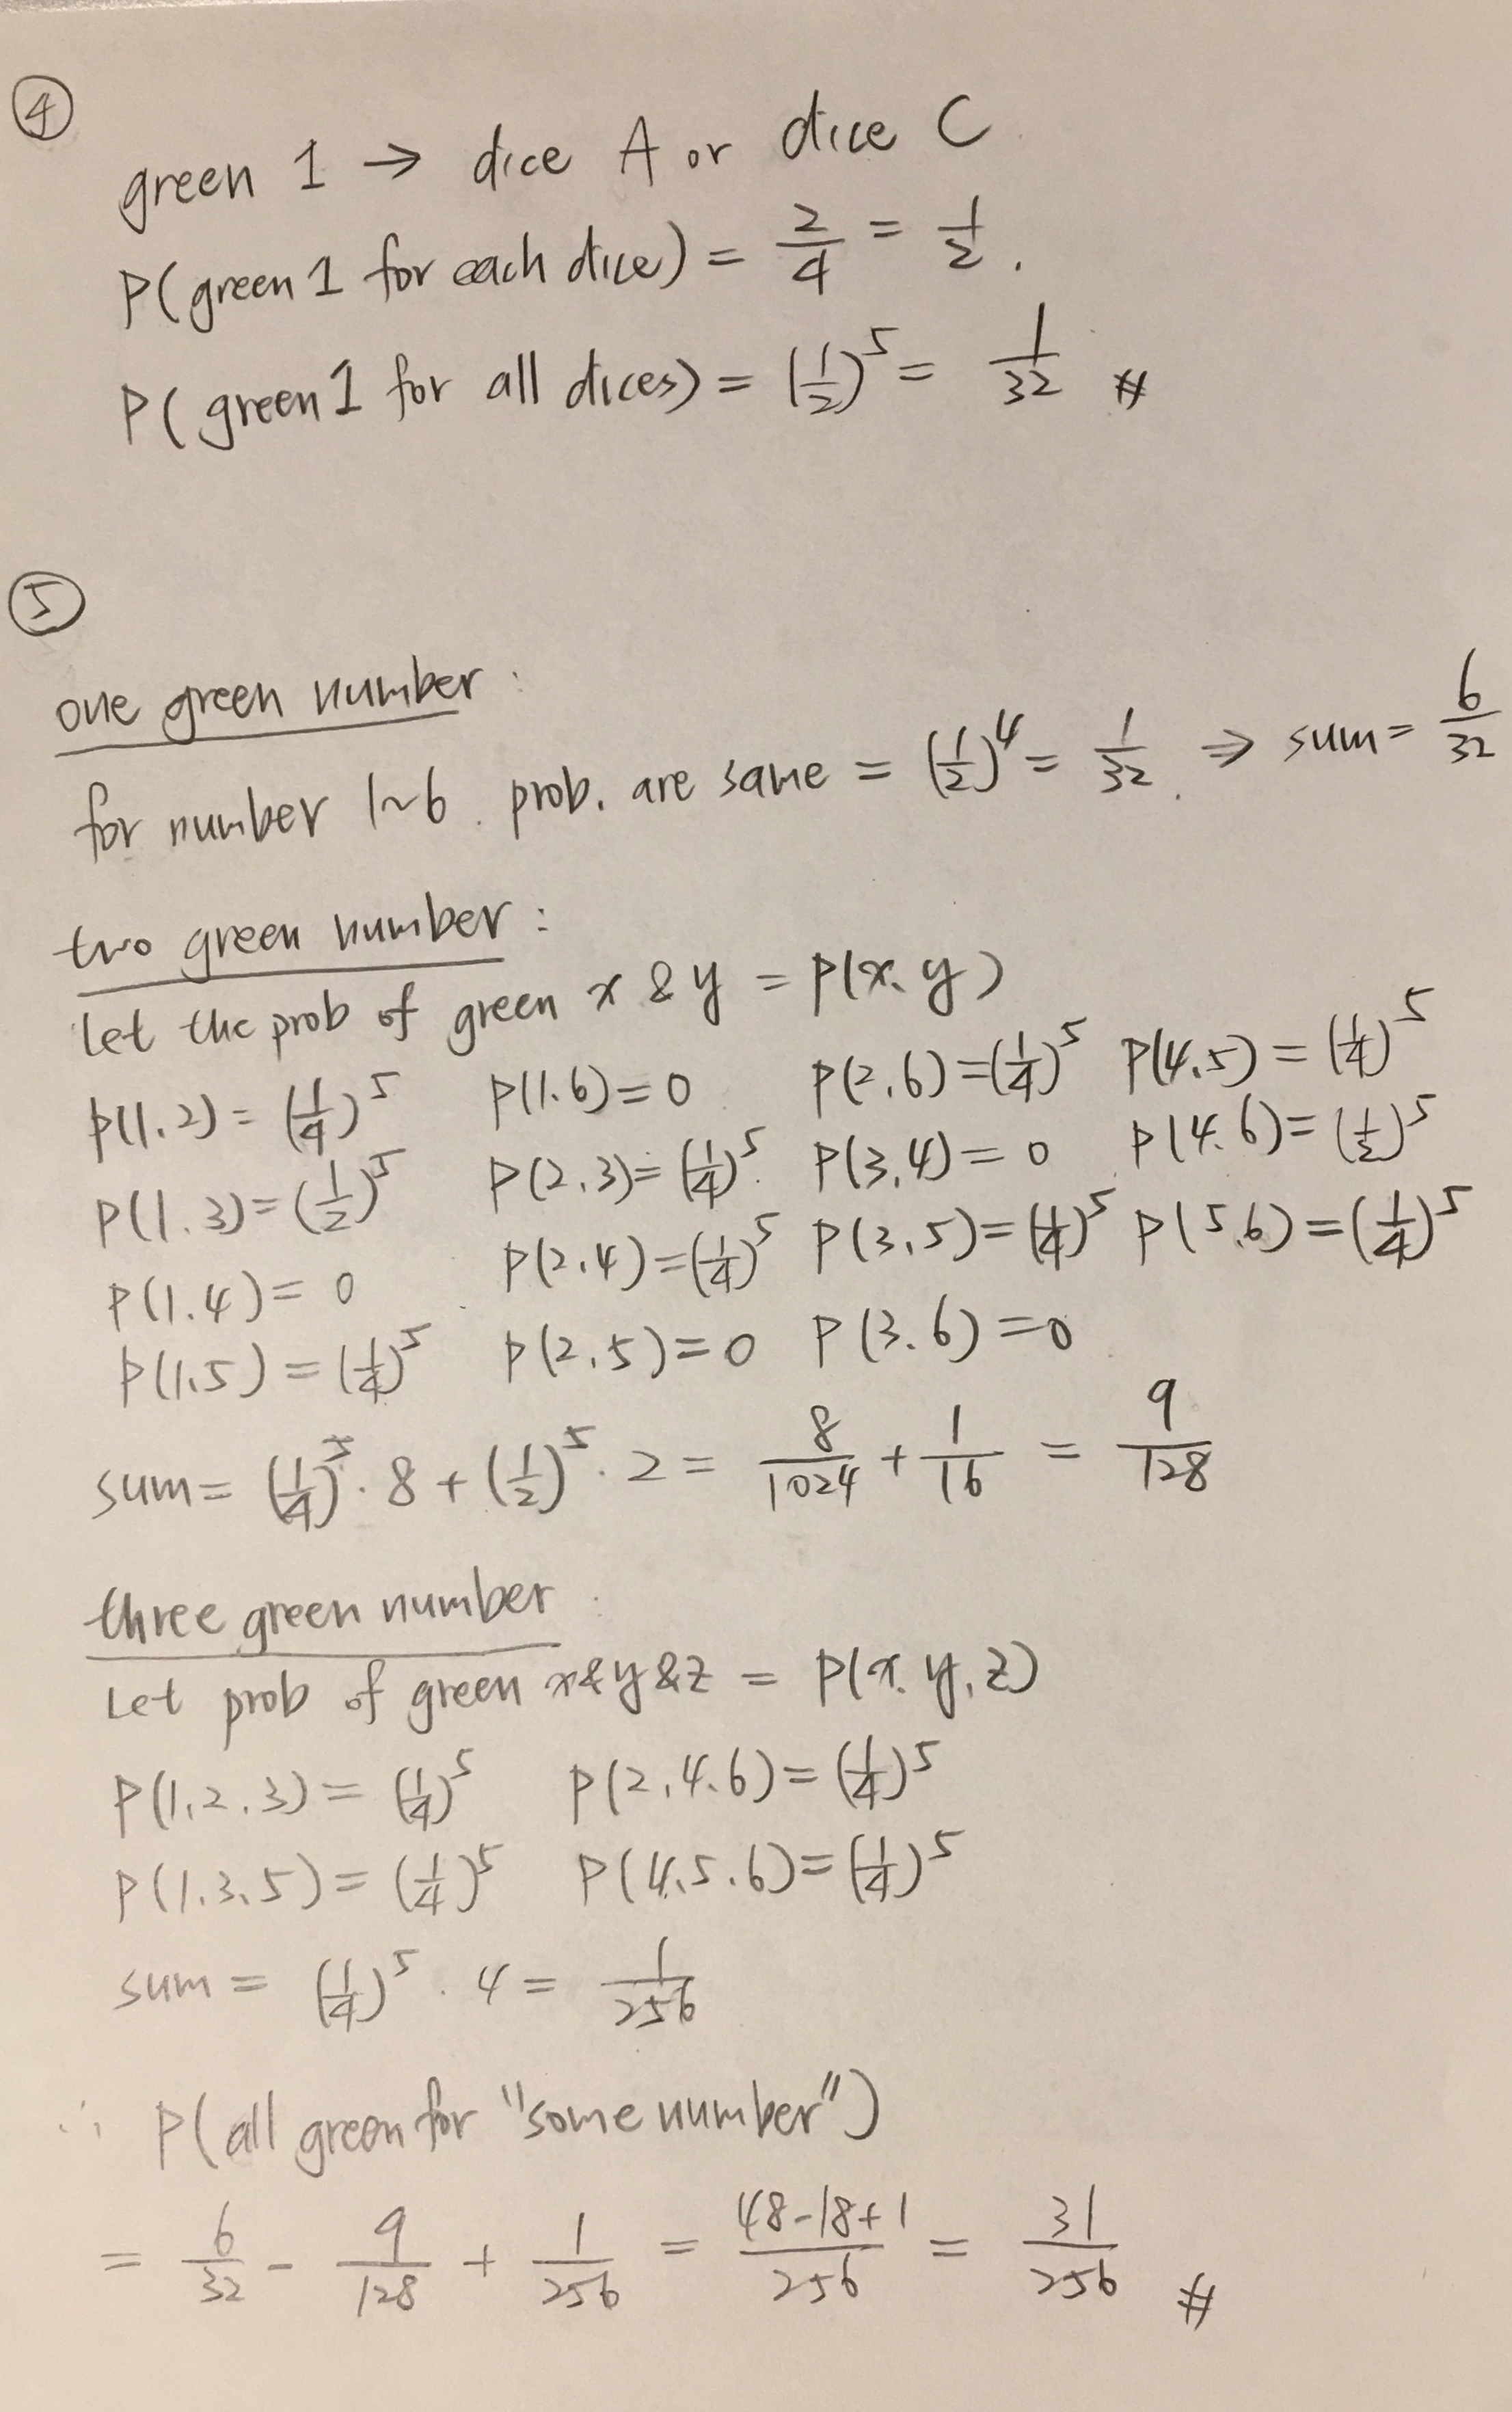 ④
green 1 → dice A or dice C
P(green 1 for each dice) = 2/4 = 1/2.
P(green 1 for all dices) = (1/2)^5 = 1/32 #
⑤
one green number:
for number 1~6. prob. are same = (1/2)^4 = 1/32. ⇒ sum = 6/32
two green number:
let the prob of green x & y = P(x.y)
P(1.2) = (1/4)^5 P(1.6) = 0 P(2,6) = (1/4)^5 P(4.5) = (1/4)^5
P(1.3) = (1/2)^5 P(2.3) = (1/4)^5. P(3,4) = 0 P(4.6) = (1/2)^5
P(1.4) = 0 P(2,4) = (1/4)^5 P(3,5) = (1/4)^5 P(5.6) = (1/4)^5
P(1,5) = (1/4)^5 P(2,5) = 0 P(3.6) = 0
sum = (1/4)^5 · 8 + (1/2)^5 · 2 = 8/1024 + 1/16 = 9/128
three green number
Let prob of green x&y&z = P(x.y,z)
P(1,2,3) = (1/4)^5 P(2,4.6) = (1/4)^5
P(1.3,5) = (1/4)^5 P(4,5.6) = (1/4)^5
sum = (1/4)^5 · 4 = 1/256
∴ P(all green for "some number")
= 6/32 - 9/128 + 1/256 = 48-18+1/256 = 31/256 #